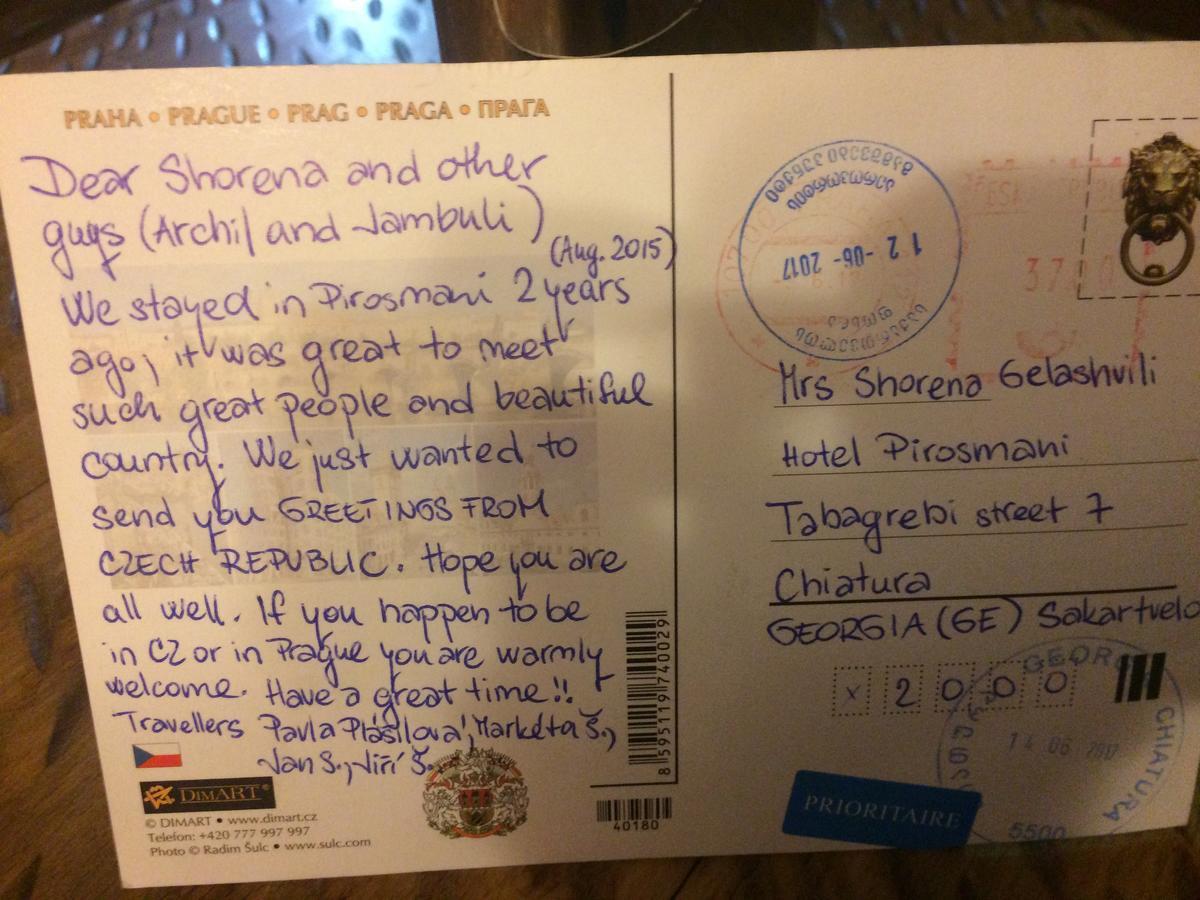 PRAHA • PRAGUE • PRAG • PRAGA • ПРАГА
Dear Shorena and other
guys (Archil and Jambuli)
(Aug. 2015)
We stayed in Pirosmani 2 years
ago, it was great to meet
such great people and beautiful
country. We just wanted to
send you GREETINGS FROM
CZECH REPUBLIC. Hope you are
all well. If you happen to be
in CZ or in Prague you are warmly
welcome. Have a great time!!
Travellers Pavla Plášilová, Markéta Š.,
Jan S., Jiří Š.
DIMART
© DIMART • www.dimart.cz
Telefon: +420 777 997 997
Photo © Radim Šulc • www.sulc.com
8595119740029
40180
12-06-2017
Mrs Shorena Gelashvili
Hotel Pirosmani
Tabagrebi street 7
Chiatura
GEORGIA (GE) Sakartvelo
x 2000
GEORGIA
CHIATURA
14 06 2017
5500
PRIORITAIRE